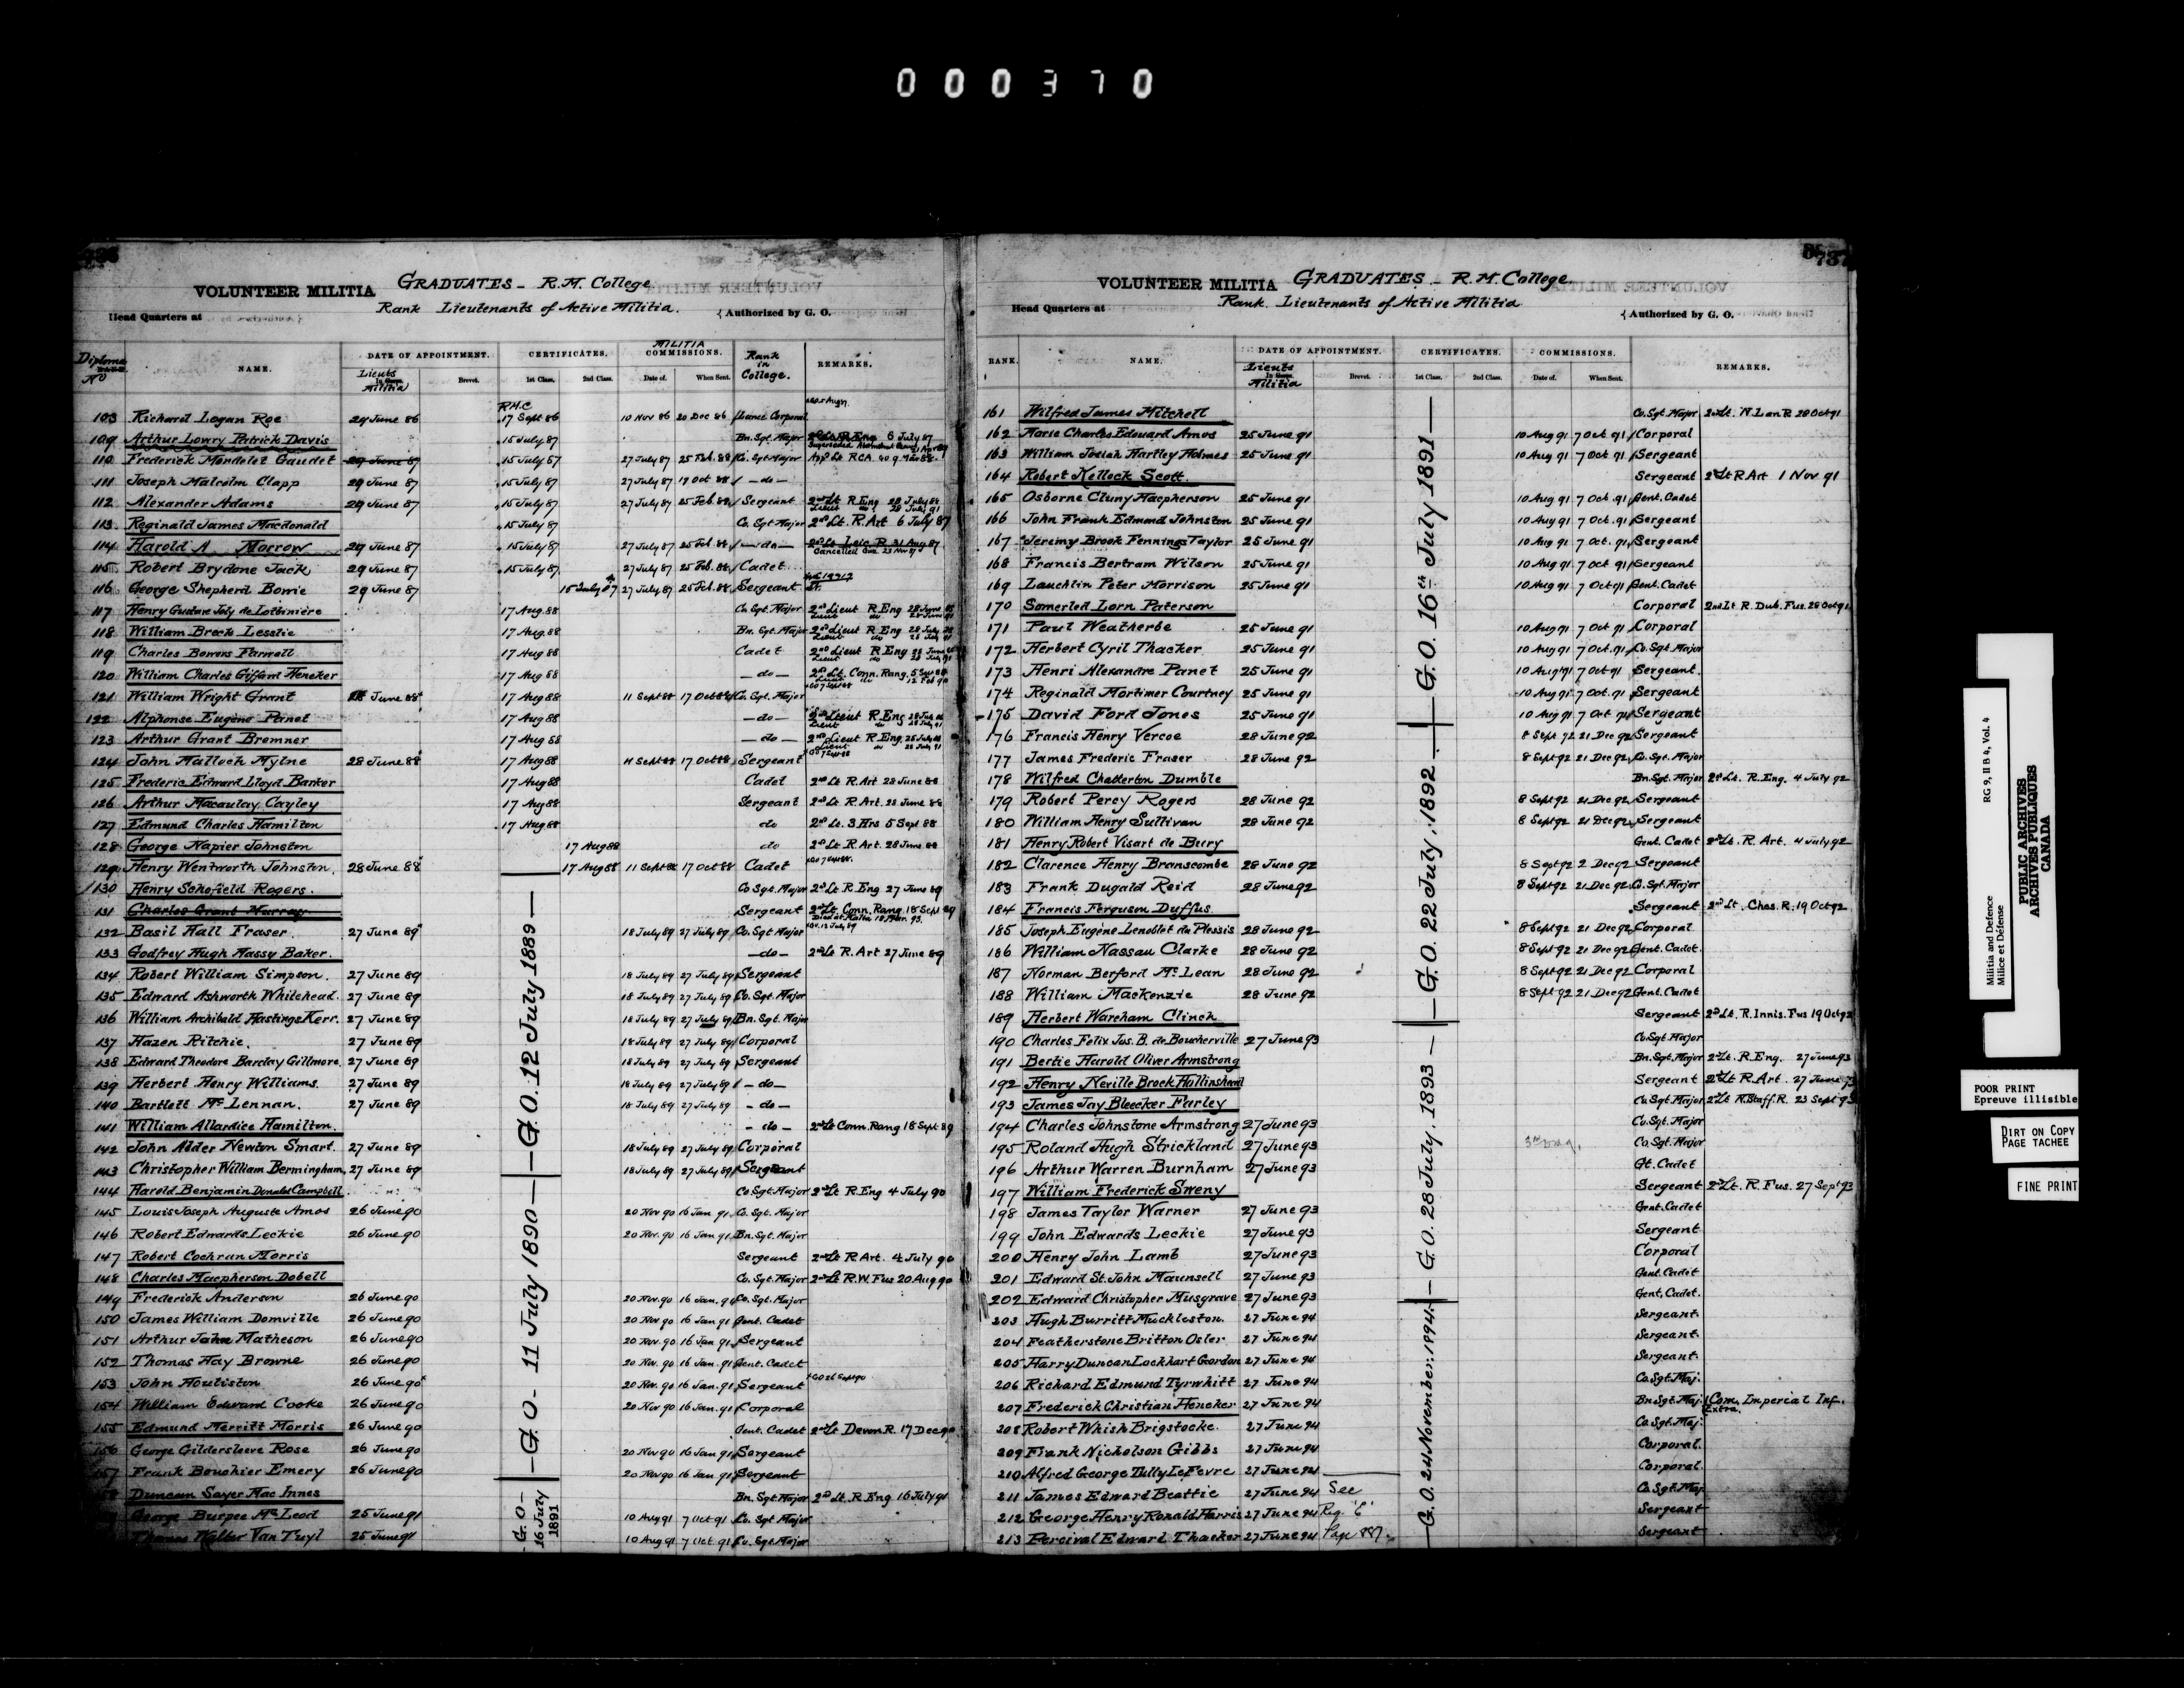 000370
736
VOLUNTEER MILITIA GRADUATES - R.M. College
Rank Lieutenants of Active Militia.
Head Quarters at {Authorized by G. O.
Diploma No NAME. DATE OF APPOINTMENT. CERTIFICATES. MILITIA COMMISSIONS. Rank in College. REMARKS.
Lieuts Militia Brevet. 1st Class. 2nd Class. Date of. When Sent.
R.M.C
103 Richard Logan Roe 29 June 86 17 Sept 86 10 Nov 86 20 Dec 86 Lance Corporal
109 Arthur Lowry Patrick Davis 15 July 87 Bn. Sgt. Major 2nd Lt R Eng 6 July 87
110 Frederick Mondelet Gaudet 29 June 87 15 July 87 27 July 87 25 Feb. 88 Co. Sgt Major
111 Joseph Malcolm Clapp 29 June 87 15 July 87 27 July 87 19 Oct 88 - do -
112 Alexander Adams 29 June 87 15 July 87 27 July 87 25 Feb 88 Sergeant 2nd Lt R Eng 28 July 88
Lieut do 28 July 91
113 Reginald James Macdonald 15 July 87 Co. Sgt Major 2nd Lt. R. Art 6 July 87
114 Harold A Morrow 29 June 87 15 July 87 27 July 87 25 Feb 88 - do - 2nd Lt Leic R 31 Aug 87
115 Robert Brydone Jack 29 June 87 15 July 87 27 July 87 25 Feb. 88 Cadet
116 George Shepherd Bowie 29 June 87 15 July 87 27 July 87 25 Feb. 88 Sergeant
117 Henry Gustave Joly de Lotbinière 17 Aug. 88 Co. Sgt. Major 2nd Lieut R Eng 28 June 88
118 William Breck Lesslie 17 Aug. 88 Bn. Sgt. Major 2nd Lieut R Eng 28 July 88
119 Charles Bowers Farwell 17 Aug 88 Cadet 2nd Lieut R Eng 28 June 88
120 William Charles Giffard Heneker 17 Aug 88 - do - 2nd Lt. Conn. Rang. 5 Sept 88
Lieut do 12 Feb 90
121 William Wright Grant 28 June 88 17 Aug 88 11 Sept 88 17 Oct 88 Co. Sgt. Major
122 Alphonse Eugène Panet 17 Aug 88 - do - 2nd Lieut R Eng 28 July 88
123 Arthur Grant Bremner 17 Aug 88 - do - 2nd Lieut R Eng 28 July 88
124 John Halloch Mylne 28 June 88 17 Aug 88 11 Sept 88 17 Oct 88 Sergeant
125 Frederic Edward Lloyd Barker 17 Aug 88 Cadet 2nd Lt R. Art 28 June 88
126 Arthur Macaulay Cayley 17 Aug 88 Sergeant 2nd Lt R Art. 28 June 88
127 Edmund Charles Hamilton 17 Aug 88 do 2nd Lt. 3 Hrs 5 Sept 88
128 George Napier Johnston 17 Aug 88 do 2nd Lt R. Art. 28 June 88
129 Henry Wentworth Johnston. 28 June 88 17 Aug 88 11 Sept 88 17 Oct 88 Cadet
130 Henry Schofield Rogers. Co Sgt. Major 2nd Lt R Eng 27 June 89
131 Charles Grant Murray Sergeant 2nd Lt. Conn. Rang. 18 Sept 89
132 Basil Hall Fraser. 27 June 89 18 July 89 27 July 89 Co. Sgt Major
133 Godfrey Hugh Massy Baker. - do - 2nd Lt R. Art 27 June 89
134 Robert William Simpson. 27 June 89 18 July 89 27 July 89 Sergeant
135 Edward Ashworth Whitehead. 27 June 89 18 July 89 27 July 89 Co. Sgt. Major
136 William Archibald Hastings Kerr. 27 June 89 18 July 89 27 July 89 Bn. Sgt. Major
137 Hazen Ritchie. 27 June 89 18 July 89 27 July 89 Corporal
138 Edward Theodore Barclay Gillmore. 27 June 89 18 July 89 27 July 89 Sergeant
139 Herbert Henry Williams. 27 June 89 18 July 89 27 July 89 - do -
140 Bartlett McLennan. 27 June 89 18 July 89 27 July 89 - do -
141 William Allardice Hamilton. - do - 2nd Lt Conn. Rang 18 Sept 89
142 John Alder Newton Smart. 27 June 89 18 July 89 27 July 89 Corporal
143 Christopher William Bermingham, 27 June 89 18 July 89 27 July 89 Sergeant
—G.O. 12 July 1889—
144 Harold Benjamin Donald Campbell Co Sgt. Major 2nd Lt R. Eng 4 July 90
145 Louis Joseph Auguste Amos 26 June 90 20 Nov 90 16 Jan 91 Co. Sgt. Major
146 Robert Edwards Leckie 26 June 90 20 Nov. 90 16 Jan 91 Bn. Sgt. Major
147 Robert Cochran Morris Sergeant 2nd Lt R Art. 4 July 90
148 Charles Macpherson Dobell Co. Sgt. Major 2nd Lt R.W. Fus 20 Aug 90
149 Frederick Anderson 26 June 90 20 Nov. 90 16 Jan. 91 Co. Sgt. Major
150 James William Domville 26 June 90 20 Nov 90 16 Jan 91 Gent. Cadet
151 Arthur John Matheson 26 June 90 20 Nov. 90 16 Jan 91 Sergeant
152 Thomas Hay Browne 26 June 90 20 Nov. 90 16 Jan. 91 Gent. Cadet
153 John Houliston 26 June 90 20 Nov. 90 16 Jan. 91 Sergeant
154 William Edward Cooke 26 June 90 20 Nov 90 16 Jan. 91 Corporal
155 Edmund Merritt Morris 26 June 90 Gent. Cadet 2nd Lt Devon R. 17 Dec 90
156 George Gildersleeve Rose 26 June 90 20 Nov 90 16 Jan 91 Sergeant
157 Frank Bouchier Emery 26 June 90 20 Nov 90 16 Jan 91 Sergeant
—G.O. 11 July 1890—
Duncan Sayer Mac Innes Bn. Sgt. Major 2nd Lt. R. Eng 16 July 91
George Burpee McLeod 25 June 91 10 Aug 91 7 Oct 91 Co. Sgt. Major
Thomas Walter Van Tuyl 25 June 91 10 Aug 91 7 Oct. 91 Co. Sgt. Major
-G.O- 16 July 1891
737
VOLUNTEER MILITIA GRADUATES - R.M. College
Rank. Lieutenants of Active Militia
Head Quarters at {Authorized by G. O.
RANK. NAME. DATE OF APPOINTMENT. CERTIFICATES. COMMISSIONS. REMARKS.
Lieuts Militia Brevet. 1st Class. 2nd Class. Date of. When Sent.
161 Wilfred James Mitchell Co. Sgt. Major 2nd Lt. N. Lan R 28 Oct 91
162 Marie Charles Edouard Amos 25 June 91 10 Aug 91 7 Oct 91 Corporal
163 William Josiah Hartley Holmes 25 June 91 10 Aug 91 7 Oct 91 Sergeant
164 Robert Kellock Scott. Sergeant 2nd Lt R Art 1 Nov 91
165 Osborne Cluny Macpherson 25 June 91 10 Aug 91 7 Oct. 91 Gent. Cadet
166 John Frank Edmund Johnston 25 June 91 10 Aug 91 7 Oct. 91 Sergeant
167 Jeremy Brook Fennings Taylor 25 June 91 10 Aug 91 7 Oct. 91 Sergeant
168 Francis Bertram Wilson 25 June 91 10 Aug 91 7 Oct 91 Sergeant
169 Lauchlin Peter Morrison 25 June 91 10 Aug 91 7 Oct 91 Gent. Cadet
170 Somerled Lorn Paterson Corporal 2nd Lt R. Dub. Fus. 28 Oct 91
171 Paul Weatherbe 25 June 91 10 Aug 91 7 Oct 91 Corporal
172 Herbert Cyril Thacker 25 June 91 10 Aug 91 7 Oct. 91 Co. Sgt. Major
173 Henri Alexandre Panet 25 June 91 10 Aug 91 7 Oct 91 Sergeant.
174 Reginald Mortimer Courtney 25 June 91 10 Aug 91 7 Oct. 91 Sergeant
175 David Ford Jones 25 June 91 10 Aug 91 7 Oct 91 Sergeant
—G.O. 16th July 1891—
176 Francis Henry Vercoe 28 June 92 8 Sept 92 21 Dec 92 Sergeant
177 James Frederic Fraser 28 June 92 8 Sept 92 21 Dec 92 Co. Sgt. Major
178 Wilfred Chatterton Dumble Bn. Sgt. Major 2nd Lt. R. Eng. 4 July 92
179 Robert Percy Rogers 28 June 92 8 Sept 92 21 Dec 92 Sergeant
180 William Henry Sullivan 28 June 92 8 Sept 92 21 Dec 92 Sergeant
181 Henry Robert Visart de Bury Gent. Cadet 2nd Lt. R. Art. 4 July 92
182 Clarence Henry Branscombe 28 June 92 8 Sept 92 2 Dec 92 Sergeant
183 Frank Dugald Reid 28 June 92 8 Sept 92 21 Dec 92 Co. Sgt. Major
184 Francis Ferguson Duffus Sergeant 2nd Lt. Ches. R. 19 Oct 92
185 Joseph Eugène Lenoblet du Plessis 28 June 92 8 Sept 92 21 Dec 92 Corporal
186 William Nassau Clarke 28 June 92 8 Sept 92 21 Dec 92 Gent. Cadet.
187 Norman Berford McLean 28 June 92 8 Sept 92 21 Dec 92 Corporal
188 William Mackenzie 28 June 92 8 Sept 92 21 Dec 92 Gent. Cadet
189 Herbert Wareham Clinch Sergeant 2nd Lt. R. Innis. Fus 19 Oct 92
—G.O. 22 July, 1892—
190 Charles Felix Jos. B. de Boucherville 27 June 93 Co. Sgt. Major
191 Bertie Harold Oliver Armstrong Bn. Sgt. Major 2nd Lt. R. Eng. 27 June 93
192 Henry Neville Brock Hollinshead Sergeant 2nd Lt R. Art. 27 June 93
193 James Jay Bleecker Farley Co Sgt. Major 2nd Lt N. Staff. R. 23 Sept 93
194 Charles Johnstone Armstrong 27 June 93 Co. Sgt. Major
195 Roland Hugh Strickland 27 June 93 Co. Sgt. Major
196 Arthur Warren Burnham 27 June 93 Gt. Cadet
197 William Frederick Sweny Sergeant 2nd Lt. R. Fus. 27 Sept 93
198 James Taylor Warner 27 June 93 Gent. Cadet
199 John Edwards Leckie 27 June 93 Sergeant
200 Henry John Lamb 27 June 93 Corporal
201 Edward St. John Maunsell 27 June 93 Gent. Cadet
202 Edward Christopher Musgrave 27 June 93 Gent. Cadet.
—G.O. 28 July. 1893—
203 Hugh Burritt Muckleston. 27 June 94 Sergeant.
204 Featherstone Britton Osler 27 June 94 Sergeant.
205 Harry Duncan Lockhart Gordon 27 June 94 Sergeant.
206 Richard Edmund Tyrwhitt 27 June 94 Co. Sgt. Maj.
207 Frederick Christian Heneker 27 June 94 Bn Sgt. Maj. Com. Imperial Inf.
Extra.
208 Robert Whish Brigstocke. 27 June 94 Co. Sgt. Maj.
209 Frank Nicholson Gibbs 27 June 94 Corporal.
210 Alfred George Tully LeFevre 27 June 94 Corporal.
211 James Edward Beattie 27 June 94 See Co. Sgt. Maj.
212 George Henry Ronald Harris 27 June 94 Reg. "E" Sergeant
213 Percival Edward Thacker 27 June 94 Page 887. Sergeant
—G.O. 24 November, 1894—
Militia and Defence
Milice et Défense
RG 9, II B 4, Vol. 4
PUBLIC ARCHIVES
ARCHIVES PUBLIQUES
CANADA
POOR PRINT
Epreuve illisible
DIRT ON COPY
PAGE TACHEE
FINE PRINT